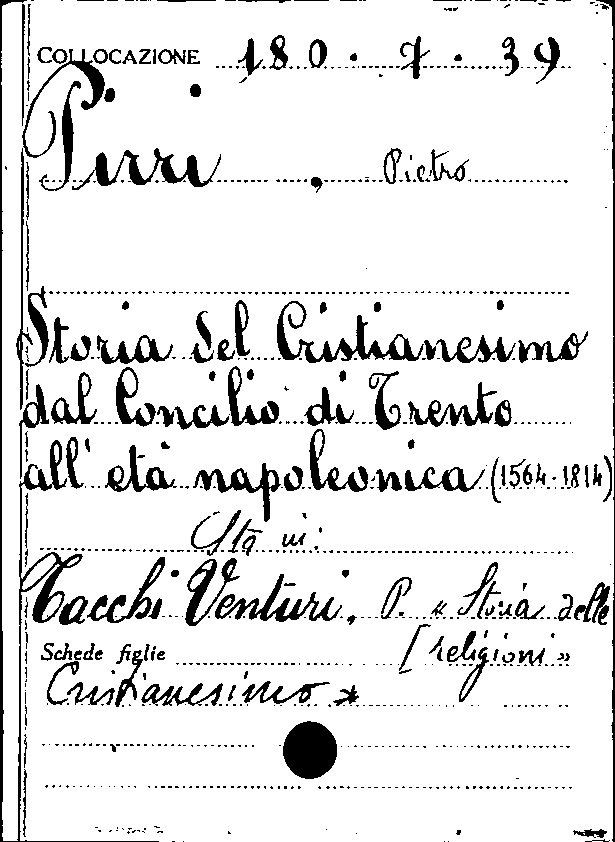 COLLOCAZIONE 180 · 7 · 39
Pirri , Pietro
Storia del Cristianesimo
dal Concilio di Trento
all' età napoleonica (1564-1814)
Sta in:
Tacchi Venturi, P. « Storia delle
Schede figlie [religioni »
Cristianesimo *